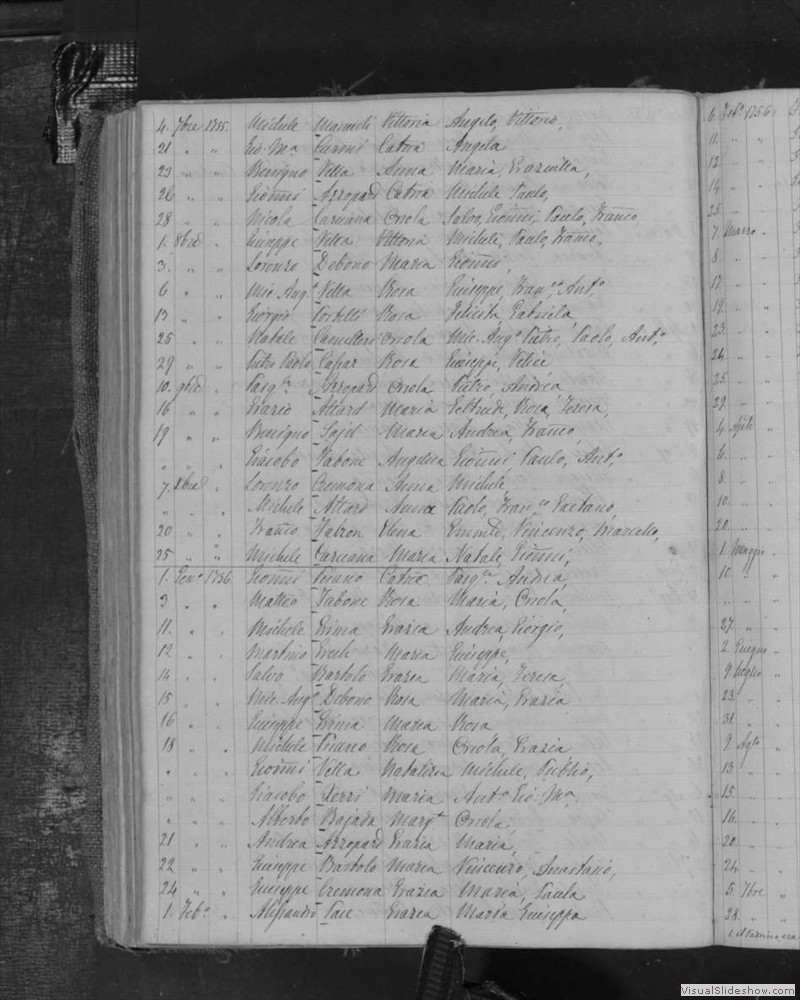 4. 7bre 1755. Michele Mamuli Vittoria Angelo, Vittorio,
21 " " Gio Ma Caroni Catna Angela
23 " " Benigno Vella Anna Maria, Graziulla,
26 " " Gionni Azzopard Catna Michele Paulo,
28 " " Nicola Caruana Orsola Salvo, Gionni, Paulo, Franco,
1. 8bre " Giuseppe Vella Vittoria Michele, Paulo, Franco,
3. " " Lorenzo Debono Maria Gionni,
6 " " Mic. Ango Vella Rosa Giuseppe, Franco, Anto
13 " " Giorgio Portelli Rosa Felicita Gabriela,
25 " " Natale Camilleri Orsola Mic. Ango Pietro, Paolo, Anto
29 " " Pietro Paolo Caspar Rosa Giuseppe, Felice
10. 9bre " Pasqle Azzopard Orsola Pietro, Andrea
16 " " Grazio Attard Maria Geltrude, Rosa, Teresa,
19 " " Benigno Sajd Maria Andrea, Franco,
" " " Giacobo Tabone Angelica Gionni, Paulo, Anto
7. Xbre " Lorenzo Cremona Anna Michele
" " " Michele Attard Anna Paolo, Franco Gaetano,
20 " " Franco Tabron Elena Emmle, Vincenzo, Marcello,
25 " " Michele Caruana Maria Natale, Gionni,
1. Geno 1756 Gionni Pisano Catna Pasqle Andrea,
3 " " Matteo Tabone Rosa Maria, Orsola,
11. " " Michele Grima Grazia Andrea, Giorgio,
12 " " Martino Grech Maria Giuseppe,
14 " " Salvo Bartolo Grazia Maria, Teresa,
15 " " Mic. Ango Debono Rosa Maria, Grazia
16 " " Giuseppe Grima Maria Rosa
18 " " Michele Pisano Rosa Orsola, Grazia
" " " Gionni Vella Natalizia Michele, Publio,
" " " Giacobo Xerri Maria Anto Gio. Ma
" " " Alberto Bajada Margta Orsola,
21 " " Andrea Azzopard Grazia Maria,
22 " " Giuseppe Bartolo Maria Vincenzo, Anastasio,
24 " " Giuseppe Cremona Grazia Maria, Paula
1. Febo " Alessandro Pace Grazia Maria Giuseppa
6. Febo 1756
11. " "
12. " "
14 " "
25. " "
7. Marzo "
8 " "
17. " "
19. " "
23. " "
24. " "
25. " "
29. " "
4. Aple "
6. " "
8. " "
10. " "
20. " "
1. Maggio "
10. " "
" " "
27. " "
2. Giugno "
9. Luglio "
23. " "
31. " "
9. Agto "
13. " "
15. " "
16. " "
20. " "
24. " "
5. 7bre "
28. " "
VisualSlideshow.com